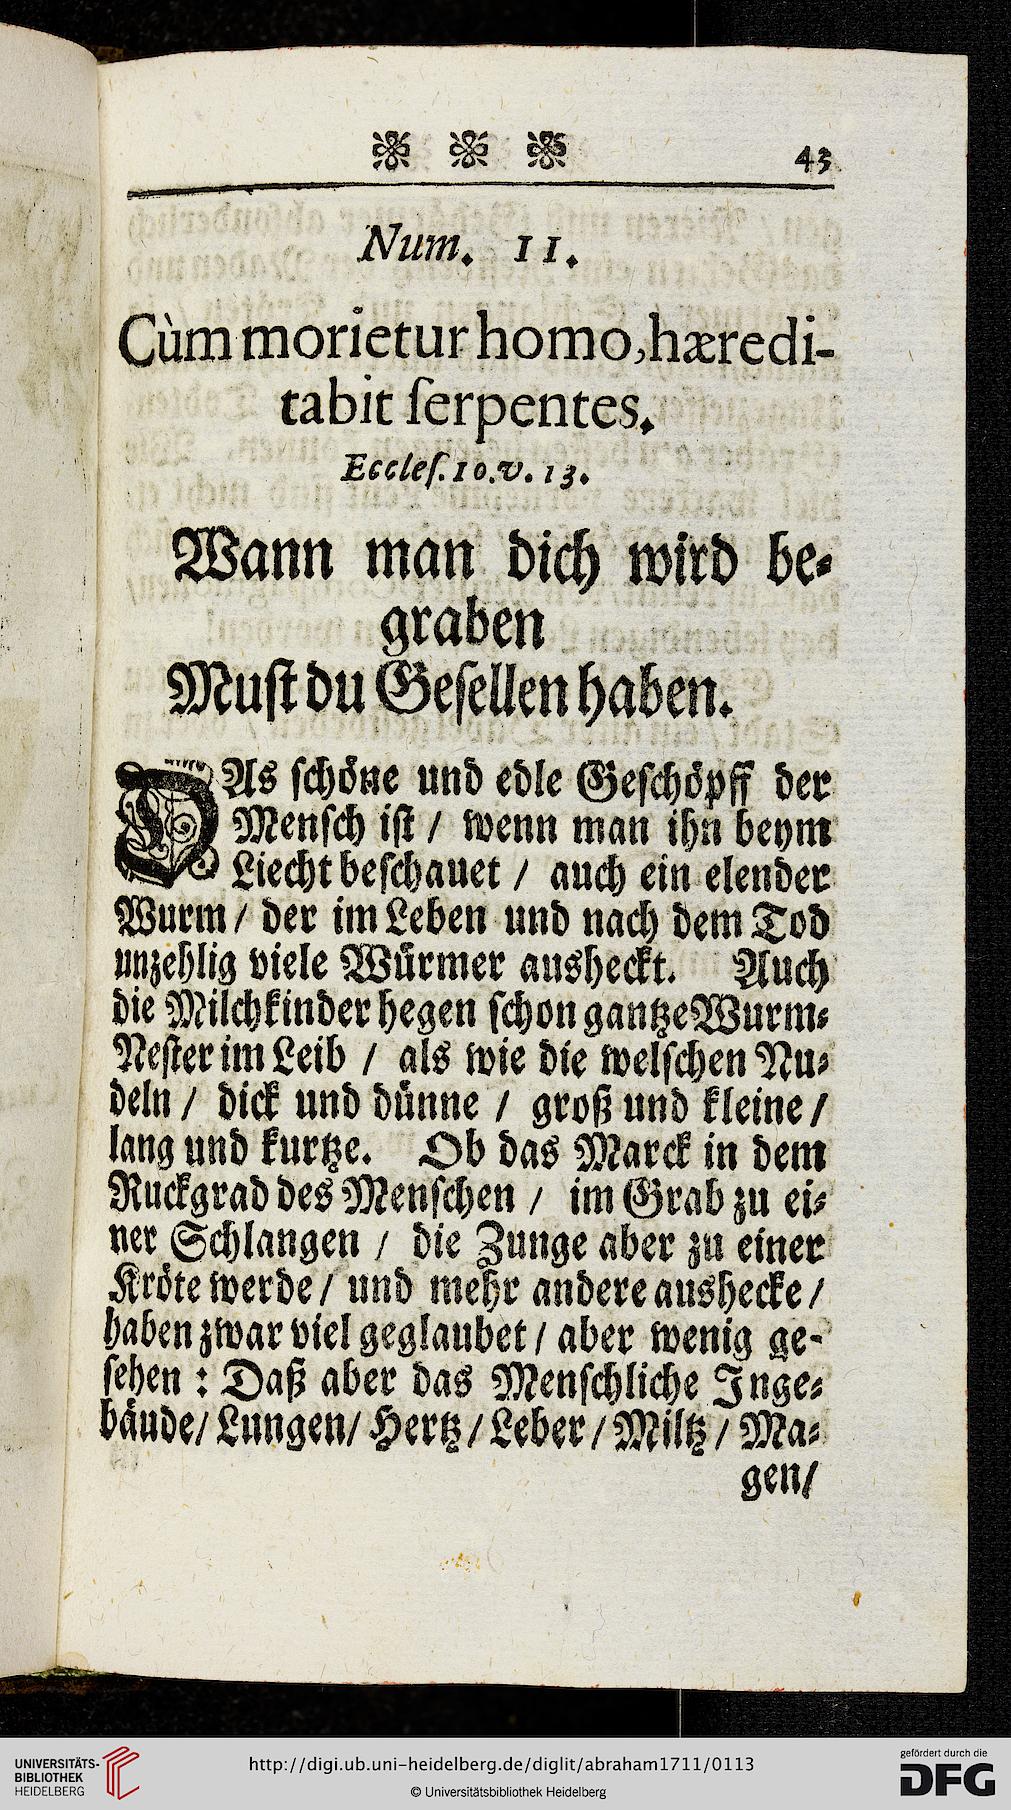 43
Num. 11.
Cùm morietur homo, hæredi-
tabit ſerpentes.
Eccleſ. 10. v. 13.
Wann man dich wird be-
graben
Muſt du Geſellen haben.
DAs ſchöne und edle Geſchöpff der
Menſch iſt / wenn man ihn beym
Liecht beſchauet / auch ein elender
Wurm / der im Leben und nach dem Tod
unzehlig viele Würmer ausheckt. Auch
die Milchkinder hegen ſchon gantze Wurm-
Neſter im Leib / als wie die welſchen Nu-
deln / dick und dünne / groß und kleine /
lang und kurtze. Ob das Marck in dem
Ruckgrad des Menſchen / im Grab zu ei-
ner Schlangen / die Zunge aber zu einer
Kröte werde / und mehr andere aushecke /
haben zwar viel geglaubet / aber wenig ge-
ſehen : Daß aber das Menſchliche Inge-
bäude / Lungen / Hertz / Leber / Miltz / Ma-
gen /
UNIVERSITÄTS-
BIBLIOTHEK
HEIDELBERG
http://digi.ub.uni-heidelberg.de/diglit/abraham1711/0113
© Universitätsbibliothek Heidelberg
gefördert durch die
DFG